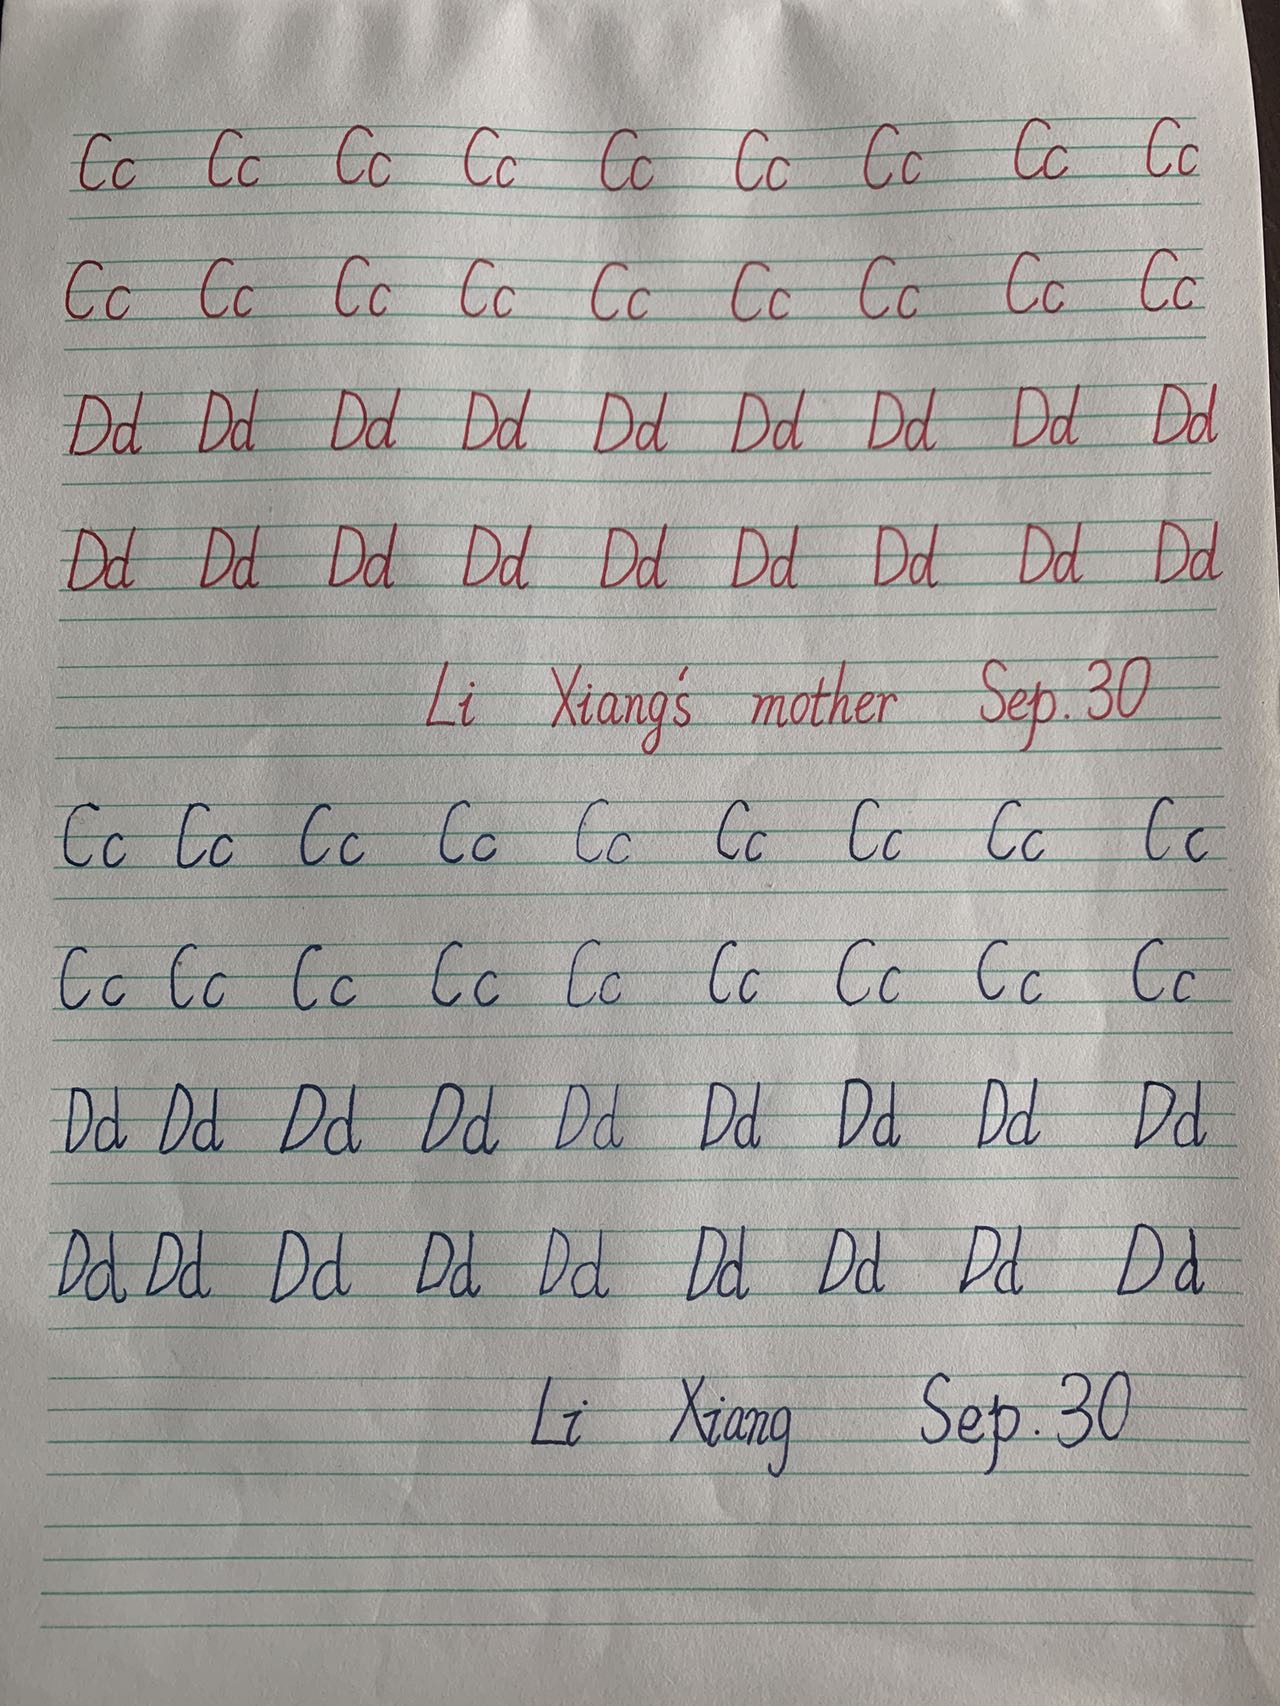 Cc Cc Cc Cc Cc Cc Cc Cc Cc
Cc Cc Cc Cc Cc Cc Cc Cc Cc
Dd Dd Dd Dd Dd Dd Dd Dd Dd
Dd Dd Dd Dd Dd Dd Dd Dd Dd
Li Xiang's mother Sep. 30
Cc Cc Cc Cc Cc Cc Cc Cc Cc
Cc Cc Cc Cc Cc Cc Cc Cc Cc
Dd Dd Dd Dd Dd Dd Dd Dd Dd
Dd Dd Dd Dd Dd Dd Dd Dd Dd
Li Xiang Sep. 30